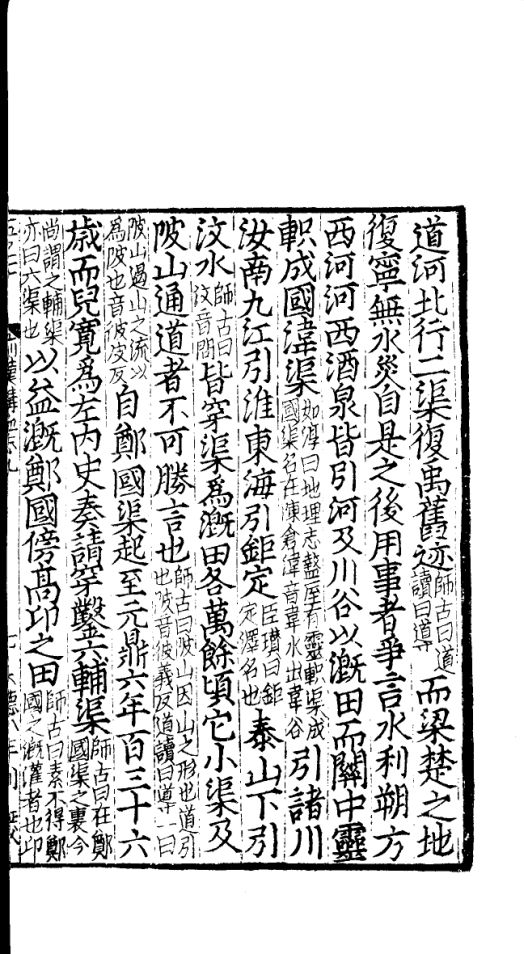 道河北行二渠復禹舊迹師古曰道讀曰導而梁楚之地
復寧無水災自是之後用事者爭言水利朔方
西河河西酒泉皆引河及川谷以溉田而關中靈
軹成國湋渠如淳曰地理志盩厔有靈軹渠成國渠名在陳倉湋音韋水出韋谷引諸川
汝南九江引淮東海引鉅定臣瓚曰鉅定澤名也泰山下引
汶水師古曰汶音問皆穿渠爲溉田各萬餘頃它小渠及
陂山通道者不可勝言也師古曰陂山因山之形也道引也陂音彼義反道讀曰導一曰
陂山遏山之流以爲陂也音彼皮反自鄭國渠起至元鼎六年百三十六
歲而兒寬爲左內史奏請穿鑿六輔渠師古曰在鄭國渠之裏今
尚謂之輔渠亦曰六渠也以益溉鄭國傍高卬之田師古曰素不得鄭國之溉灌者也卬